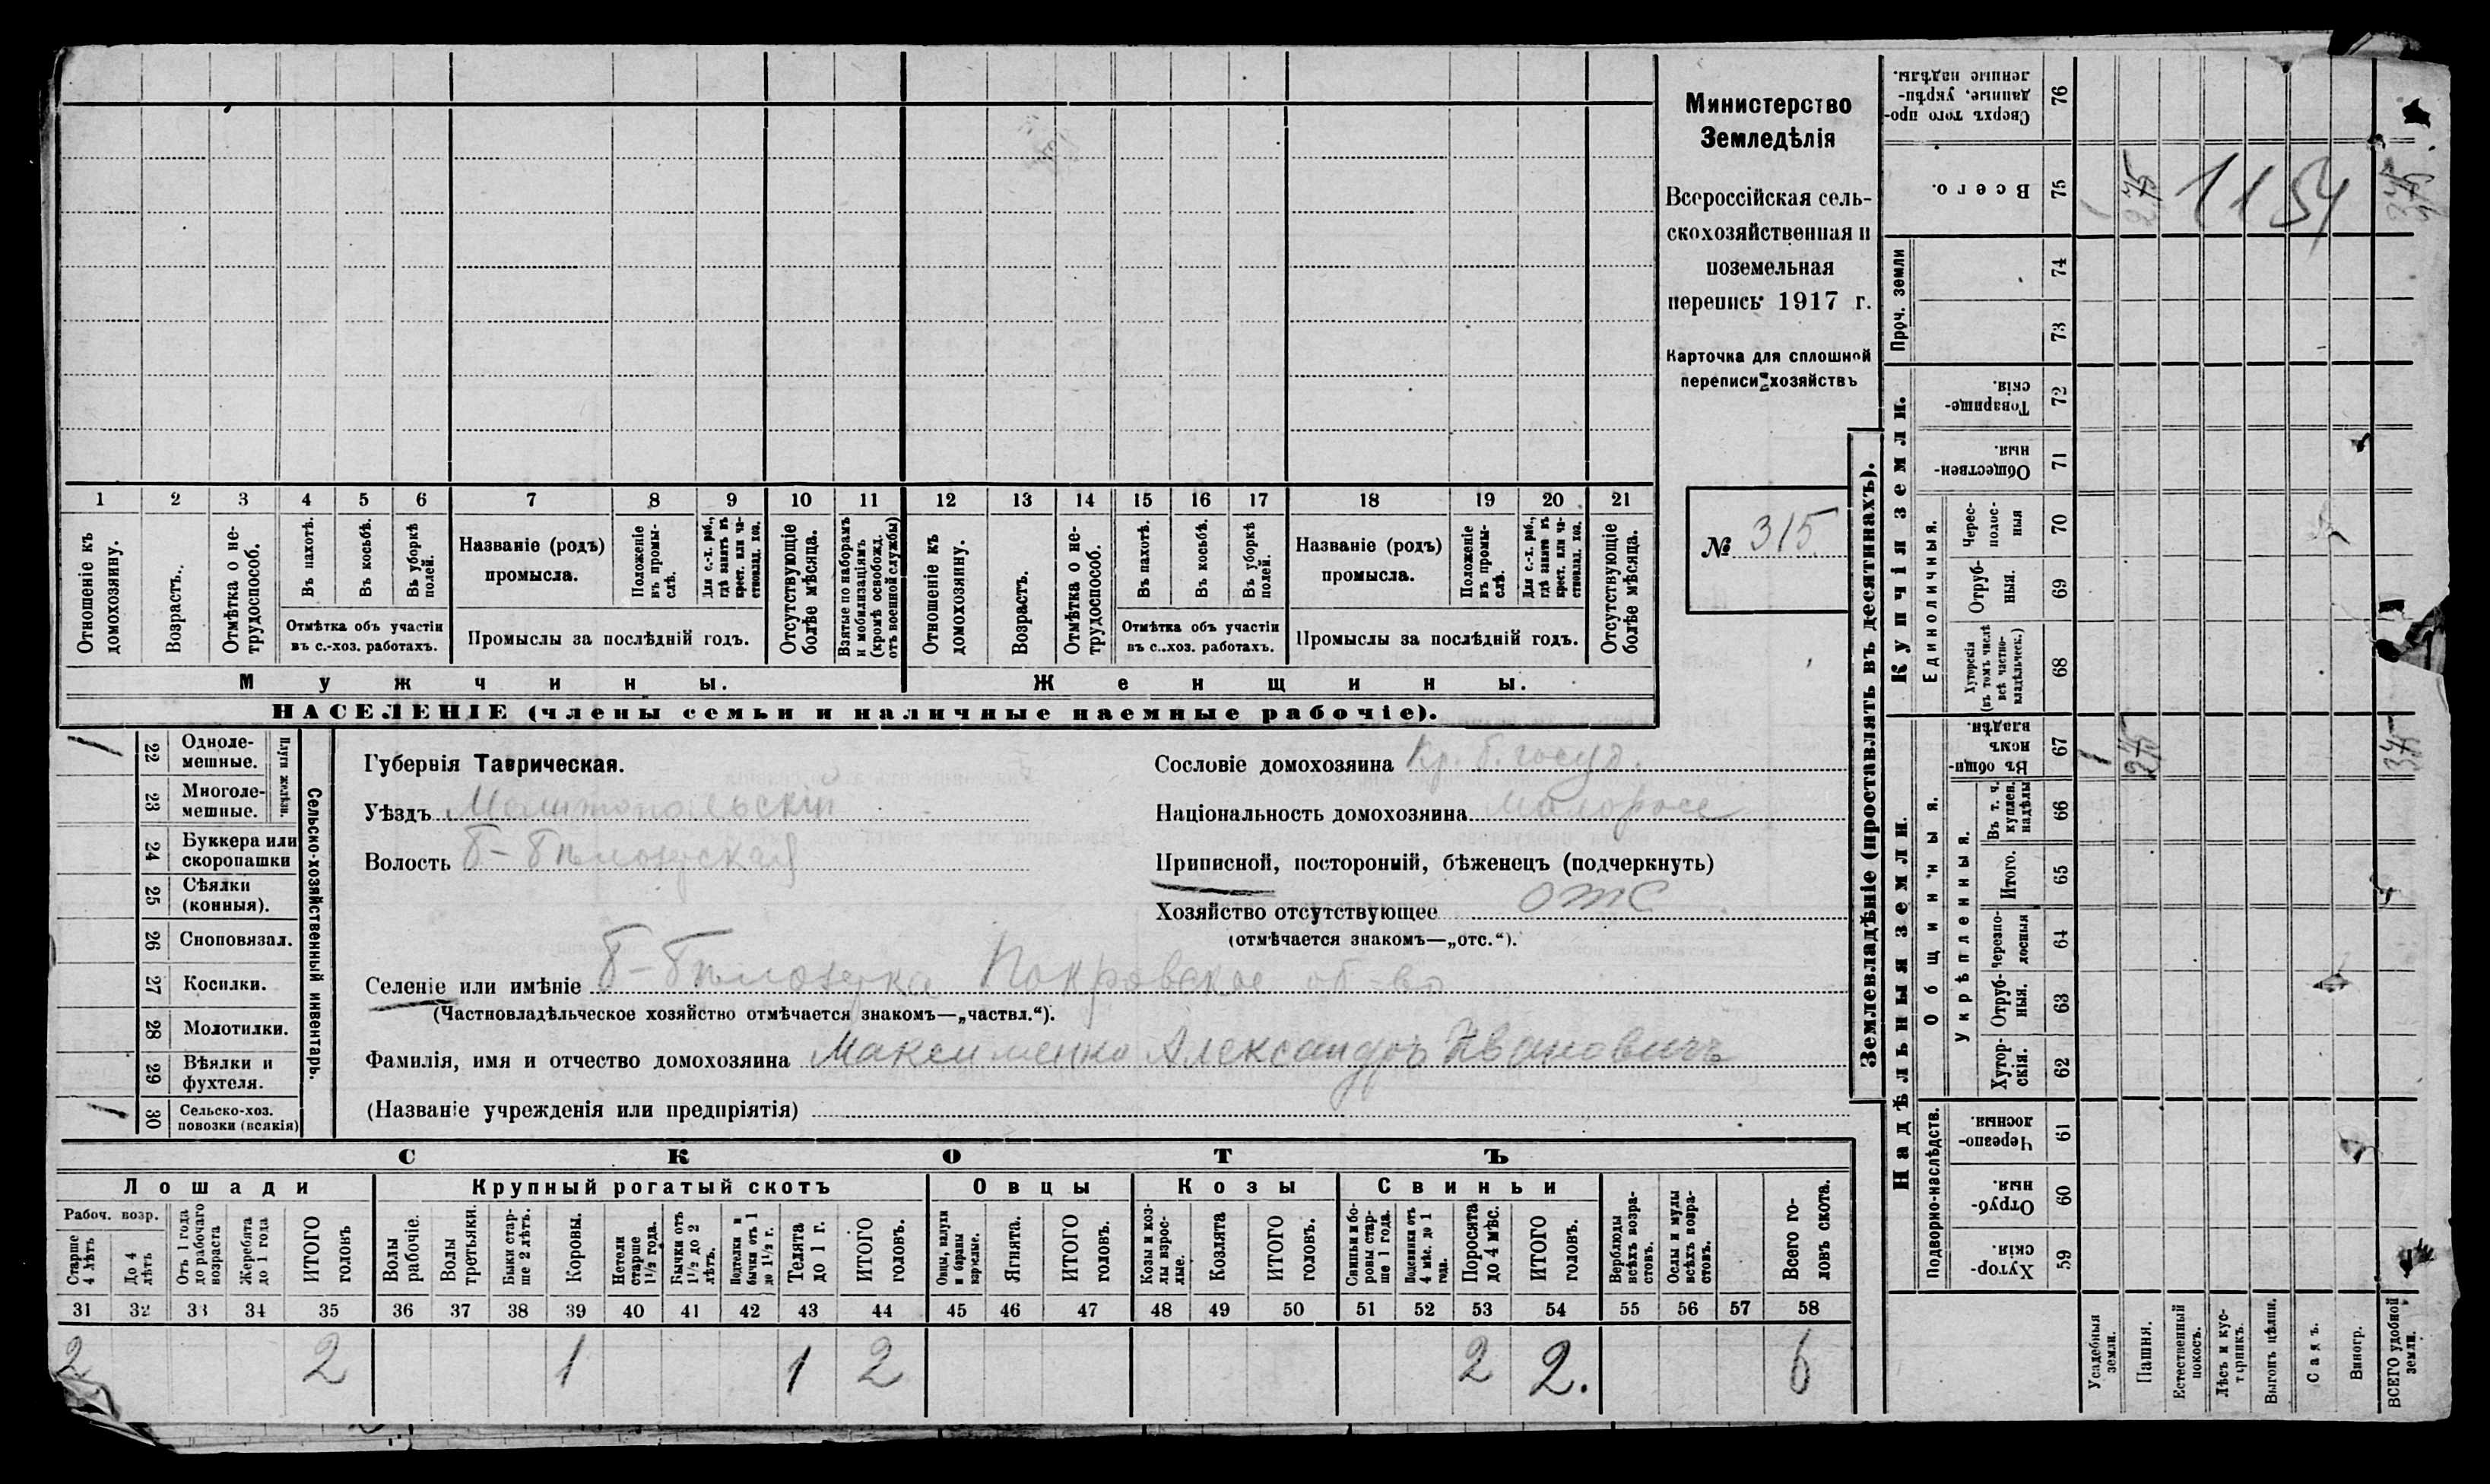 Министерство
Земледѣлія
Всероссійская сель-
скохозяйственная и
поземельная
перепись 1917 г.
Карточка для сплошной
переписи хозяйствъ
№ 315
1 2 3 4 5 6 7 8 9 10 11 12 13 14 15 16 17 18 19 20 21
Отношеніе къ домохозяину.
Возрастъ.
Отмѣтка о не-
трудоспособ.
Въ пахотѣ.
Въ косьбѣ.
Въ уборкѣ полей.
Отмѣтка объ участіи
въ с.-хоз. работахъ.
Названіе (родъ)
промысла.
Положеніе
въ промы-
слѣ.
Для с.-х. раб.,
гдѣ занятъ въ
крест. или ча-
стновлад. хоз.
Промыслы за послѣдній годъ.
Отсутствующіе
болѣе мѣсяца.
Взятые по наборамъ
и мобилизаціямъ
(кромѣ освобожд.
отъ военной службы)
Отношеніе къ
домохозяину.
Возрастъ.
Отмѣтка о не-
трудоспособ.
Въ пахотѣ.
Въ косьбѣ.
Въ уборкѣ
полей.
Отмѣтка объ участіи
въ с..хоз. работахъ.
Названіе (родъ)
промысла.
Положеніе
въ промы-
слѣ.
Для с.-х. раб.,
гдѣ занята въ
крест. или ча-
стновлад. хоз.
Промыслы за послѣдній годъ.
Отсутствующіе
болѣе мѣсяца.
Мужчины.
Женщины.
НАСЕЛЕНІЕ (члены семьи и наличные наемные рабочіе).
Сельско-хозяйственный инвентарь.
Плуги желѣзн.
1 22 Одноле-
мешные.
23 Многоле-
мешные.
24 Буккера или
скоропашки
25 Сѣялки
(конныя).
26 Сноповязал.
27 Косилки.
28 Молотилки.
29 Вѣялки и
фухтеля.
1 30 Сельско-хоз.
повозки (всякія)
Губернія Таврическая.
Уѣздъ Мелитопольскій
Волость Б-Бѣлозерская
Сословіе домохозяина Кр. б. госуд.
Національность домохозяина Малоросс
Приписной, посторонній, бѣженецъ (подчеркнуть)
Хозяйство отсутствующее отс
(отмѣчается знакомъ—„отс.“).
Селеніе или имѣніе Б-Бѣлозерка Покровское об-во
(Частновладѣльческое хозяйство отмѣчается знакомъ—„частвл.“).
Фамилія, имя и отчество домохозяина Максименко Александръ Ивановичъ
(Названіе учрежденія или предпріятія)
СКОТЪ
Лошади
Крупный рогатый скотъ
Овцы
Козы
Свиньи
Рабоч. возр.
Старше
4 лѣтъ
До 4
лѣтъ
Отъ 1 года
до рабочаго
возраста
Жеребята
до 1 года
ИТОГО
головъ
Волы
рабочіе.
Волы
третьяки.
Быки стар-
ше 2 лѣтъ.
Коровы.
Нетели
старше
1½ года.
Бычки отъ
1½ до 2
лѣтъ.
Подтелки и
бычки отъ 1
до 1½ г.
Телята
до 1 г.
ИТОГО
головъ.
Овцы, валухи
и бараны
взрослые.
Ягнята.
ИТОГО
головъ.
Козы и коз-
лы взрос-
лые.
Козлята
ИТОГО
головъ.
Свиньи и бо-
ровы стар-
ше 1 года.
Подсвинки отъ
4 мѣс. до 1
года.
Поросята
до 4 мѣс.
ИТОГО
головъ.
Верблюды
всѣхъ возра-
стовъ.
Ослы и мулы
всѣхъ возра-
стовъ.
Всего го-
ловъ скота.
31 32 33 34 35 36 37 38 39 40 41 42 43 44 45 46 47 48 49 50 51 52 53 54 55 56 57 58
2 2 1 1 2 2 2. 6
Землевладѣніе (проставлять въ десятинахъ).
Купчія земли.
Надѣльныя земли.
Проч. земли
Единоличныя.
Общинныя.
Укрѣпленныя.
Подворно-наслѣдств.
Сверхъ того про-
данные, укрѣп-
ленные надѣлы. 76
Всего. 75
74
73
Товарище-
скія. 72
Обществен-
ныя. 71
Черес-
полос-
ныя 70
Отруб-
ныя. 69
Хуторскія
(въ томъ числѣ
всѣ частно-
владѣльческ.) 68
Въ общин-
номъ
владѣн. 67
Въ т. ч.
куплен.
надѣлы 66
Итого. 65
Черезпо-
лосныя 64
Отруб-
ныя. 63
Хутор-
скія. 62
Черезпо-
лосныя 61
Отруб-
ныя. 60
Хутор-
скія. 59
Усадебныя
земли.
Пашня.
Естественный
покосъ.
Лѣсъ и кус-
тарникъ.
Выгонъ цѣлин.
Садъ.
Виногр.
ВСЕГО удобной
земли.
1154